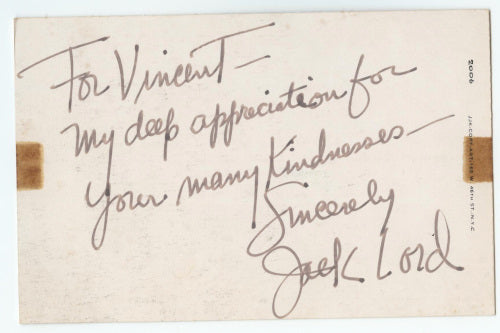 For Vincent—
My deep appreciation for
your many kindnesses—
Sincerely
Jack Lord
2006
46TH ST. N.Y.C